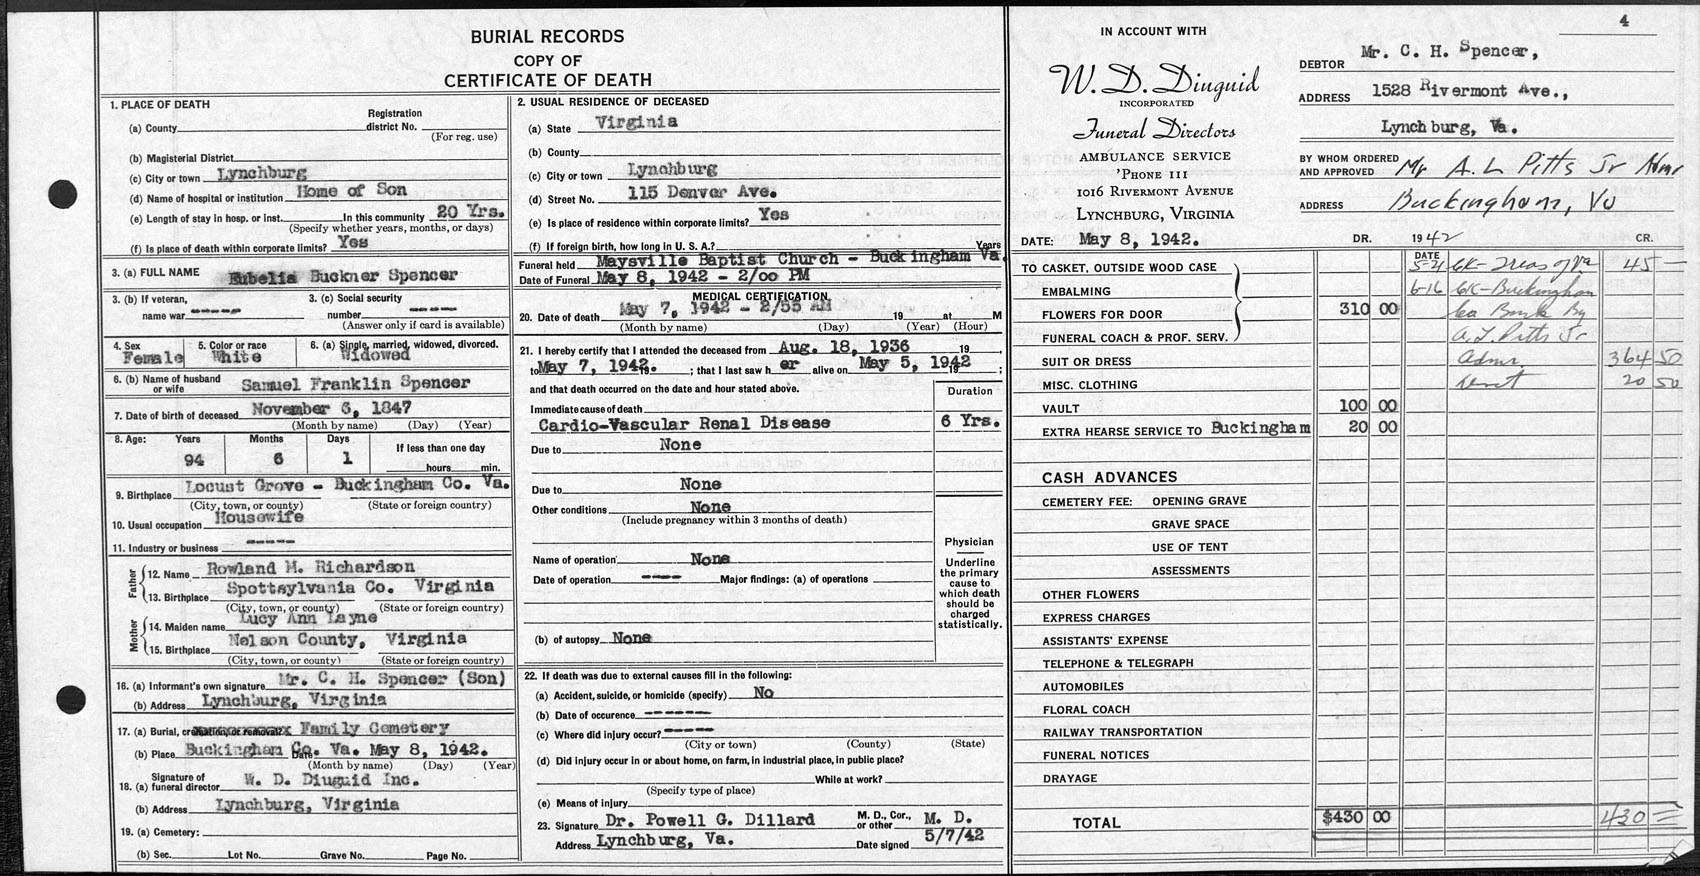 BURIAL RECORDS
COPY OF
CERTIFICATE OF DEATH
1. PLACE OF DEATH
(a) County
Registration district No.
(For reg. use)
(b) Magisterial District
(c) City or town Lynchburg
(d) Name of hospital or institution Home of Son
(e) Length of stay in hosp. or inst. In this community 20 Yrs.
(Specify whether years, months, or days)
(f) Is place of death within corporate limits? Yes
3. (a) FULL NAME Eubelia Buckner Spencer
3. (b) If veteran, name war -----
3. (c) Social security number -----
(Answer only if card is available)
4. Sex Female
5. Color or race White
6. (a) Single, married, widowed, divorced. Widowed
6. (b) Name of husband or wife Samuel Franklin Spencer
7. Date of birth of deceased November 6, 1847
(Month by name) (Day) (Year)
8. Age: Years Months Days If less than one day
94 6 1 hours min.
9. Birthplace Locust Grove - Buckingham Co. Va.
(City, town, or county) (State or foreign country)
10. Usual occupation Housewife
11. Industry or business -----
Father
12. Name Rowland M. Richardson
13. Birthplace Spottsylvania Co. Virginia
(City, town, or county) (State or foreign country)
Mother
14. Maiden name Lucy Ann Layne
15. Birthplace Nelson County, Virginia
(City, town, or county) (State or foreign country)
16. (a) Informant's own signature Mr. C. H. Spencer (Son)
(b) Address Lynchburg, Virginia
17. (a) Burial, cremation, or removal? Family Cemetery
(b) Place Buckingham Co. Va. Date May 8, 1942.
(Month by name) (Day) (Year)
18. (a) Signature of funeral director W. D. Diuguid Inc.
(b) Address Lynchburg, Virginia
19. (a) Cemetery:
(b) Sec. Lot No. Grave No. Page No.
2. USUAL RESIDENCE OF DECEASED
(a) State Virginia
(b) County
(c) City or town Lynchburg
(d) Street No. 115 Denver Ave.
(e) Is place of residence within corporate limits? Yes
(f) If foreign birth, how long in U. S. A.? Years
Funeral held Maysville Baptist Church - Buckingham Va.
Date of Funeral May 8, 1942 - 2/00 PM
MEDICAL CERTIFICATION
20. Date of death May 7, 1942 - 2/55 AM 19 at M
(Month by name) (Day) (Year) (Hour)
21. I hereby certify that I attended the deceased from Aug. 18, 1936 19 ,
to May 7, 1942. 19 ; that I last saw h er alive on May 5, 1942 19 ;
and that death occurred on the date and hour stated above.
Duration
Immediate cause of death
Cardio-Vascular Renal Disease 6 Yrs.
Due to None
Due to None
Other conditions None
(Include pregnancy within 3 months of death)
Name of operation None
Date of operation ---- Major findings: (a) of operations
(b) of autopsy None
Physician
Underline the primary cause to which death should be charged statistically.
22. If death was due to external causes fill in the following:
(a) Accident, suicide, or homicide (specify) No
(b) Date of occurence -------
(c) Where did injury occur? ------
(City or town) (County) (State)
(d) Did injury occur in or about home, on farm, in industrial place, in public place?
While at work?
(Specify type of place)
(e) Means of injury
23. Signature Dr. Powell G. Dillard M. D., Cor., or other M. D.
Address Lynchburg, Va. Date signed 5/7/42
4
IN ACCOUNT WITH
W. D. Diuguid
INCORPORATED
Funeral Directors
AMBULANCE SERVICE
'PHONE 111
1016 RIVERMONT AVENUE
LYNCHBURG, VIRGINIA
DEBTOR Mr. C. H. Spencer,
ADDRESS 1528 Rivermont Ave.,
Lynchburg, Va.
BY WHOM ORDERED AND APPROVED Mr A. L Pitts Jr Admr
ADDRESS Buckingham, Va
DATE: May 8, 1942. DR. 1942 CR.
DATE
TO CASKET, OUTSIDE WOOD CASE 5-21 CK- Treas of Va 45 —
EMBALMING 6-16 CK-Buckingham
FLOWERS FOR DOOR 310 00 Co Bank By
FUNERAL COACH & PROF. SERV. A. L. Pitts Jr
SUIT OR DRESS Admr. 364 50
MISC. CLOTHING 20 50
VAULT 100 00
EXTRA HEARSE SERVICE TO Buckingham 20 00
CASH ADVANCES
CEMETERY FEE: OPENING GRAVE
GRAVE SPACE
USE OF TENT
ASSESSMENTS
OTHER FLOWERS
EXPRESS CHARGES
ASSISTANTS' EXPENSE
TELEPHONE & TELEGRAPH
AUTOMOBILES
FLORAL COACH
RAILWAY TRANSPORTATION
FUNERAL NOTICES
DRAYAGE
TOTAL $430 00 430 =